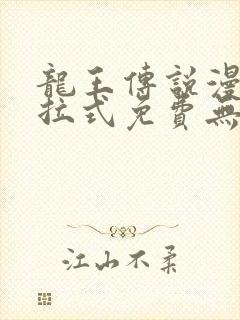 龍王傳說漫
拉式免費無
江山不柔